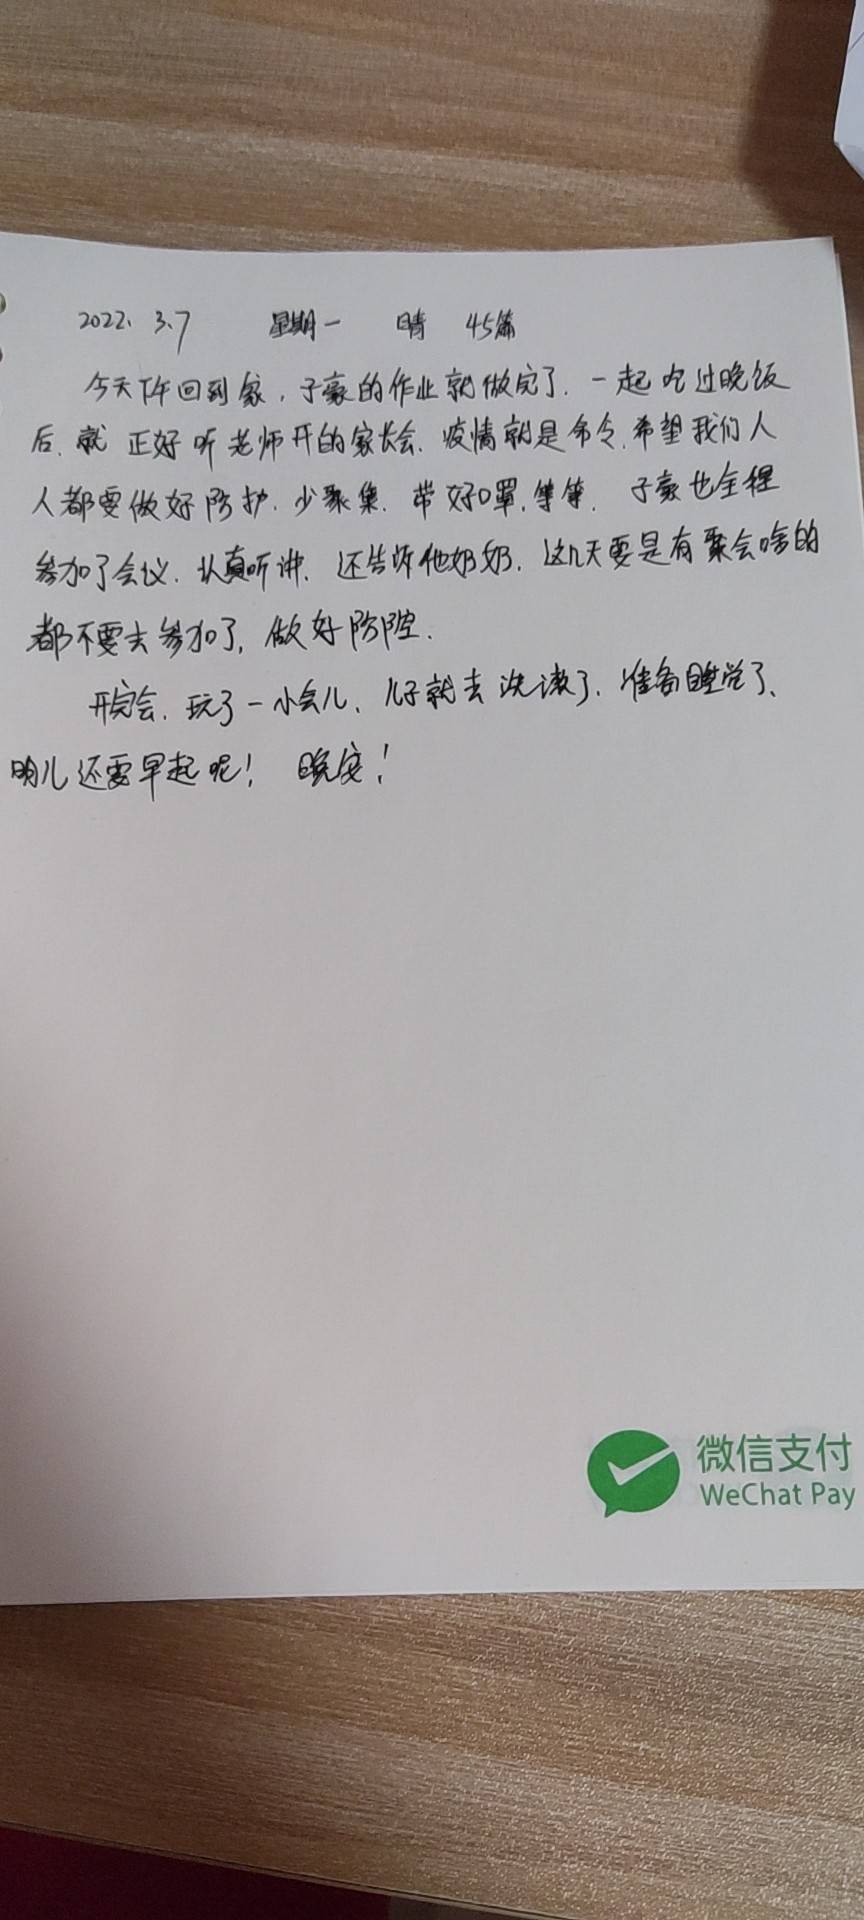 2022. 3.7 星期一 晴 45篇
今天下午回到家,子豪的作业就做完了.一起吃过晚饭
后.就正好听老师开的家长会.疫情就是命令.希望我们人
人都要做好防护.少聚集.带好口罩.等等.子豪也全程
参加了会议.认真听讲.还告诉他奶奶.这几天要是有聚会啥的
都不要去参加了,做好防控.
开完会.玩了一小会儿、儿子就去洗漱了.准备睡觉了、
明儿还要早起呢!晚安!
微信支付
WeChat Pay